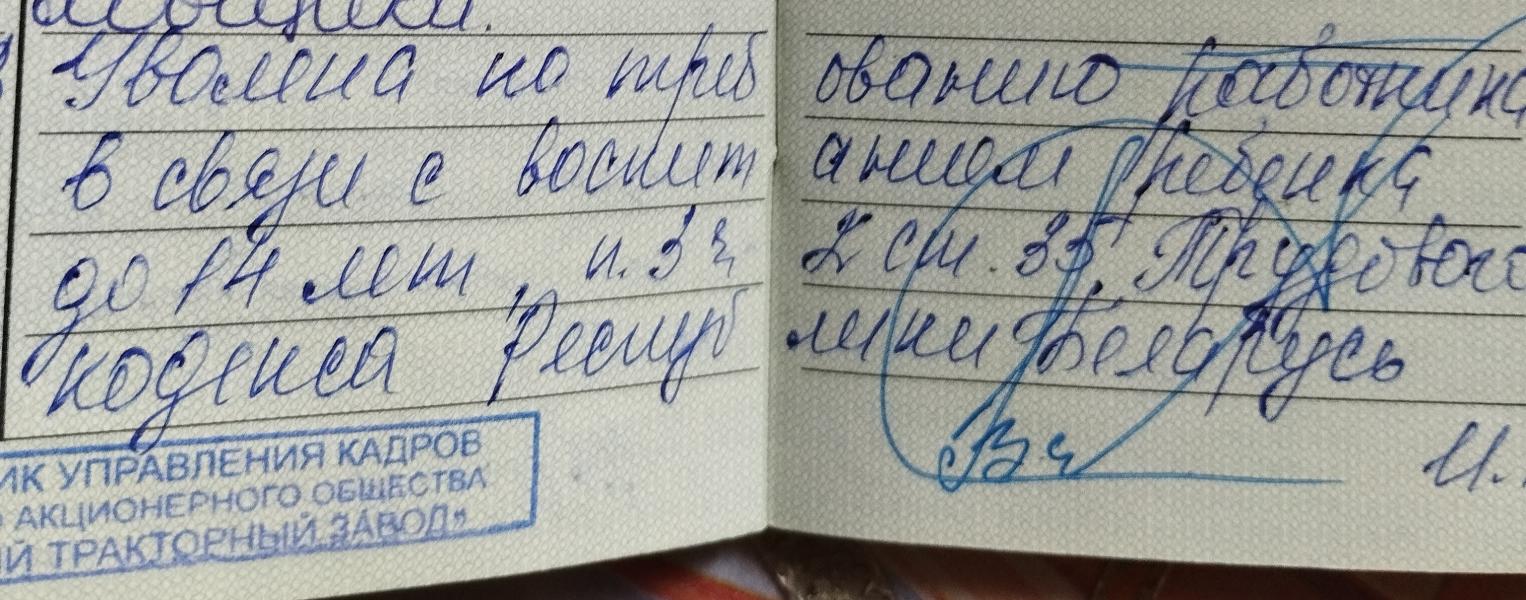 Уволена по требованию работника
в связи с воспитанием ребенка
до 14 лет, п. 3 ч. 2 ст. 35 Трудового
кодекса Республики Беларусь
ИК УПРАВЛЕНИЯ КАДРОВ
АКЦИОНЕРНОГО ОБЩЕСТВА
ИЙ ТРАКТОРНЫЙ ЗАВОД"
И.